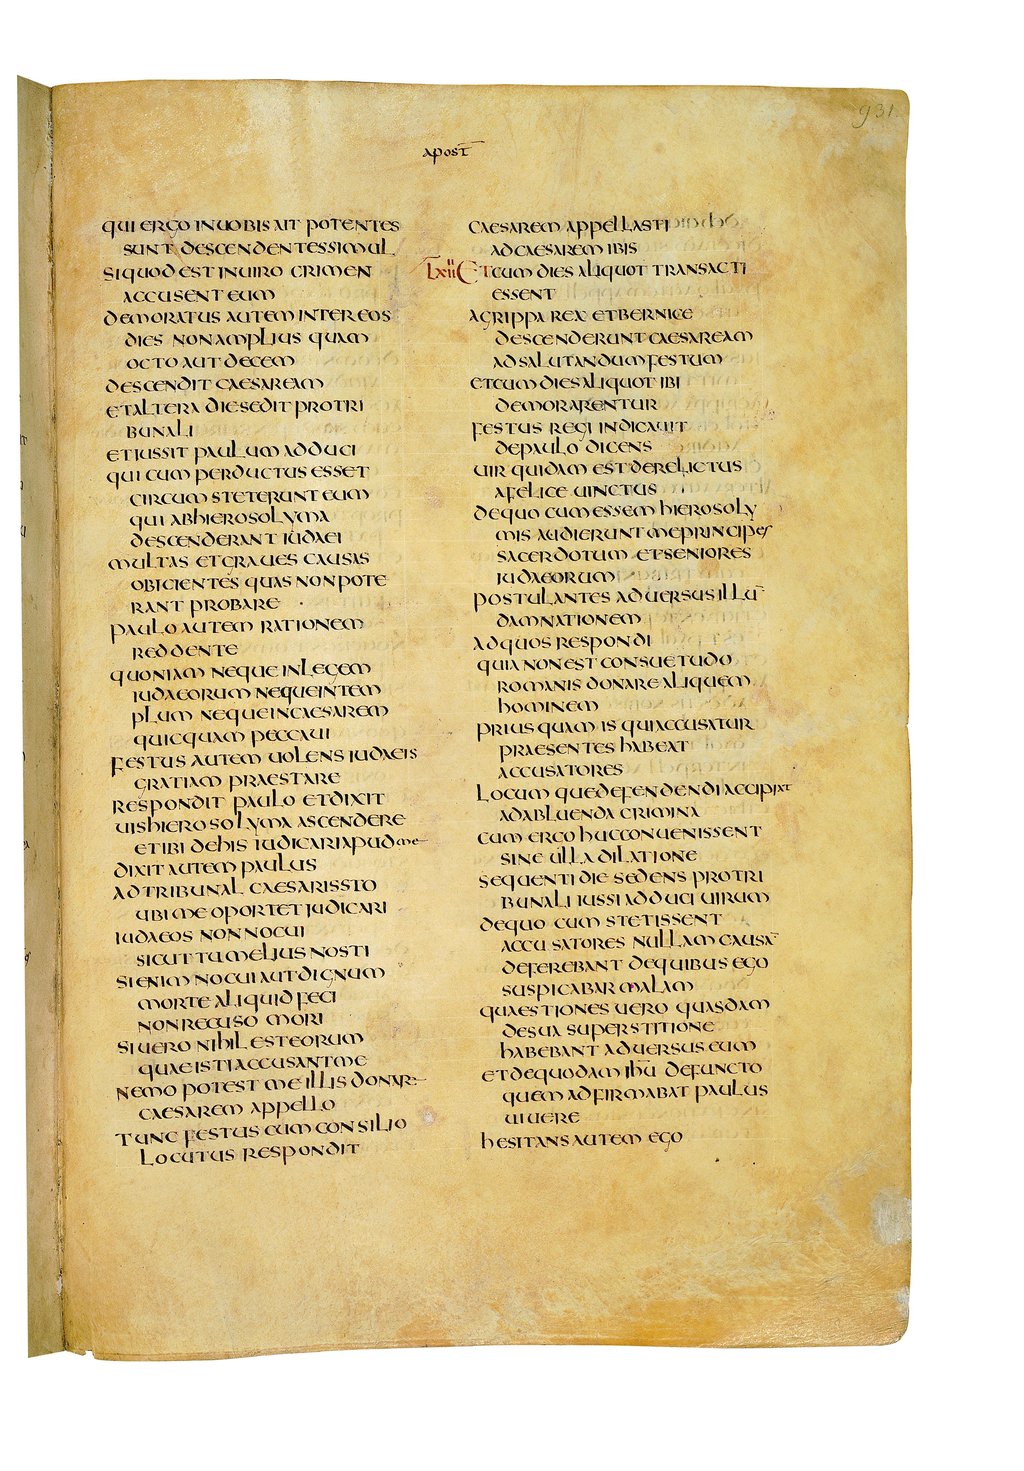 931
APOST̄
QUI ERGO IN UOBIS AIT POTENTES
SUNT DESCENDENTES SIMUL
SI QUOD EST IN UIRO CRIMEN
ACCUSENT EUM
DEMORATUS AUTEM INTER EOS
DIES NON AMPLIUS QUAM
OCTO AUT DECEM
DESCENDIT CAESAREAM
ET ALTERA DIE SEDIT PRO TRI
BUNALI
ET IUSSIT PAULUM ADDUCI
QUI CUM PERDUCTUS ESSET
CIRCUMSTETERUNT EUM
QUI AB HIEROSOLYMA
DESCENDERANT IUDAEI
MULTAS ET GRAUES CAUSAS
OBICIENTES QUAS NON POTE
RANT PROBARE
PAULO AUTEM RATIONEM
REDDENTE
QUONIAM NEQUE IN LEGEM
IUDAEORUM NEQUE IN TEM
PLUM NEQUE IN CAESAREM
QUICQUAM PECCAUI
FESTUS AUTEM UOLENS IUDAEIS
GRATIAM PRAESTARE
RESPONDIT PAULO ET DIXIT
UIS HIEROSOLYMA ASCENDERE
ET IBI DE HIS IUDICARI APUD ME
DIXIT AUTEM PAULUS
AD TRIBUNAL CAESARIS STO
UBI ME OPORTET IUDICARI
IUDAEOS NON NOCUI
SICUT TU MELIUS NOSTI
SI ENIM NOCUI AUT DIGNUM
MORTE ALIQUID FECI
NON RECUSO MORI
SI UERO NIHIL EST EORUM
QUAE ISTI ACCUSANT ME
NEMO POTEST ME ILLIS DONAR
CAESAREM APPELLO
TUNC FESTUS CUM CONSILIO
LOCUTUS RESPONDIT
CAESAREM APPELLASTI
AD CAESAREM IBIS
LXII ET CUM DIES ALIQUOT TRANSACTI
ESSENT
AGRIPPA REX ET BERNICE
DESCENDERUNT CAESAREAM
AD SALUTANDUM FESTUM
ET CUM DIES ALIQUOT IBI
DEMORARENTUR
FESTUS REGI INDICAUIT
DE PAULO DICENS
UIR QUIDAM EST DERELICTUS
A FELICE UINCTUS
DE QUO CUM ESSEM HIEROSOLY
MIS AUDIERUNT ME PRINCIPES
SACERDOTUM ET SENIORES
IUDAEORUM
POSTULANTES ADUERSUS ILLŪ
DAMNATIONEM
AD QUOS RESPONDI
QUIA NON EST CONSUETUDO
ROMANIS DONARE ALIQUEM
HOMINEM
PRIUSQUAM IS QUI ACCUSATUR
PRAESENTES HABEAT
ACCUSATORES
LOCUMQUE DEFENDENDI ACCIPIAT
AD ABLUENDA CRIMINA
CUM ERGO HUC CONUENISSENT
SINE ULLA DILATIONE
SEQUENTI DIE SEDENS PRO TRI
BUNALI IUSSI ADDUCI UIRUM
DE QUO CUM STETISSENT
ACCUSATORES NULLAM CAUSĀ
DEFEREBANT DE QUIBUS EGO
SUSPICABAR MALAM
QUAESTIONES UERO QUASDAM
DE SUA SUPERSTITIONE
HABEBANT ADUERSUS EUM
ET DE QUODAM IHŪ DEFUNCTO
QUEM ADFIRMABAT PAULUS
UIUERE
HESITANS AUTEM EGO